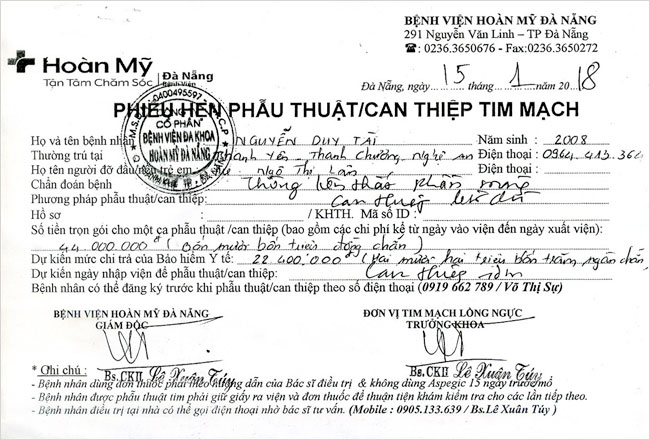 BỆNH VIỆN HOÀN MỸ ĐÀ NẴNG
291 Nguyễn Văn Linh – TP Đà Nẵng
☎: 0236.3650676 - Fax:0236.3650272
Hoàn Mỹ Đà Nẵng
Tận Tâm Chăm Sóc Bệnh Viện
Đà Nẵng, ngày 15 tháng 1 năm 2018
PHIẾU HẸN PHẪU THUẬT/CAN THIỆP TIM MẠCH
M.S. 0400495597 C.P
CỔ PHẦN
BỆNH VIỆN ĐA KHOA
HOÀN MỸ ĐÀ NẴNG
Họ và tên bệnh nhân NGUYỄN DUY TÀI Năm sinh : 2008
Thường trú tại Thanh Yên - Thanh Chương, Nghệ An Điện thoại : 0964 413 364
Họ tên người đỡ đầu/ trẻ em Ngô Thị Lan Điện thoại :
Chẩn đoán bệnh Thông liên thất phần màng
Phương pháp phẫu thuật/can thiệp: Can thiệp bít dù
Hồ sơ : / KHTH. Mã số ID :
Số tiền trọn gói cho một ca phẫu thuật /can thiệp (bao gồm các chi phí kể từ ngày vào viện đến ngày xuất viện):
44 000.000đ (Bốn mươi bốn triệu đồng chẵn)
Dự kiến mức chi trả của Bảo hiểm Y tế: 22 400.000đ (Hai mươi hai triệu bốn trăm ngàn chẵn)
Dự kiến ngày nhập viện để phẫu thuật/can thiệp: Can thiệp
Bệnh nhân có thể đăng ký trước khi phẫu thuật/can thiệp theo số điện thoại (0919 662 789 / Võ Thị Sự)
BỆNH VIỆN HOÀN MỸ ĐÀ NẴNG
GIÁM ĐỐC
ĐƠN VỊ TIM MẠCH LỒNG NGỰC
TRƯỞNG KHOA
Bs.CKII Lê Xuân Túy
Bs.CKII Lê Xuân Túy
* Ghi chú :
- Bệnh nhân dùng đơn thuốc phải theo hướng dẫn của Bác sĩ điều trị & không dùng Aspegic 15 ngày trước mổ
- Bệnh nhân được phẫu thuật tim phải giữ giấy ra viện và đơn thuốc để thuận tiện khám kiểm tra cho các lần tiếp theo.
- Bệnh nhân điều trị tại nhà có thể gọi điện thoại nhờ bác sĩ tư vấn. (Mobile : 0905.133.639 / Bs.Lê Xuân Túy )